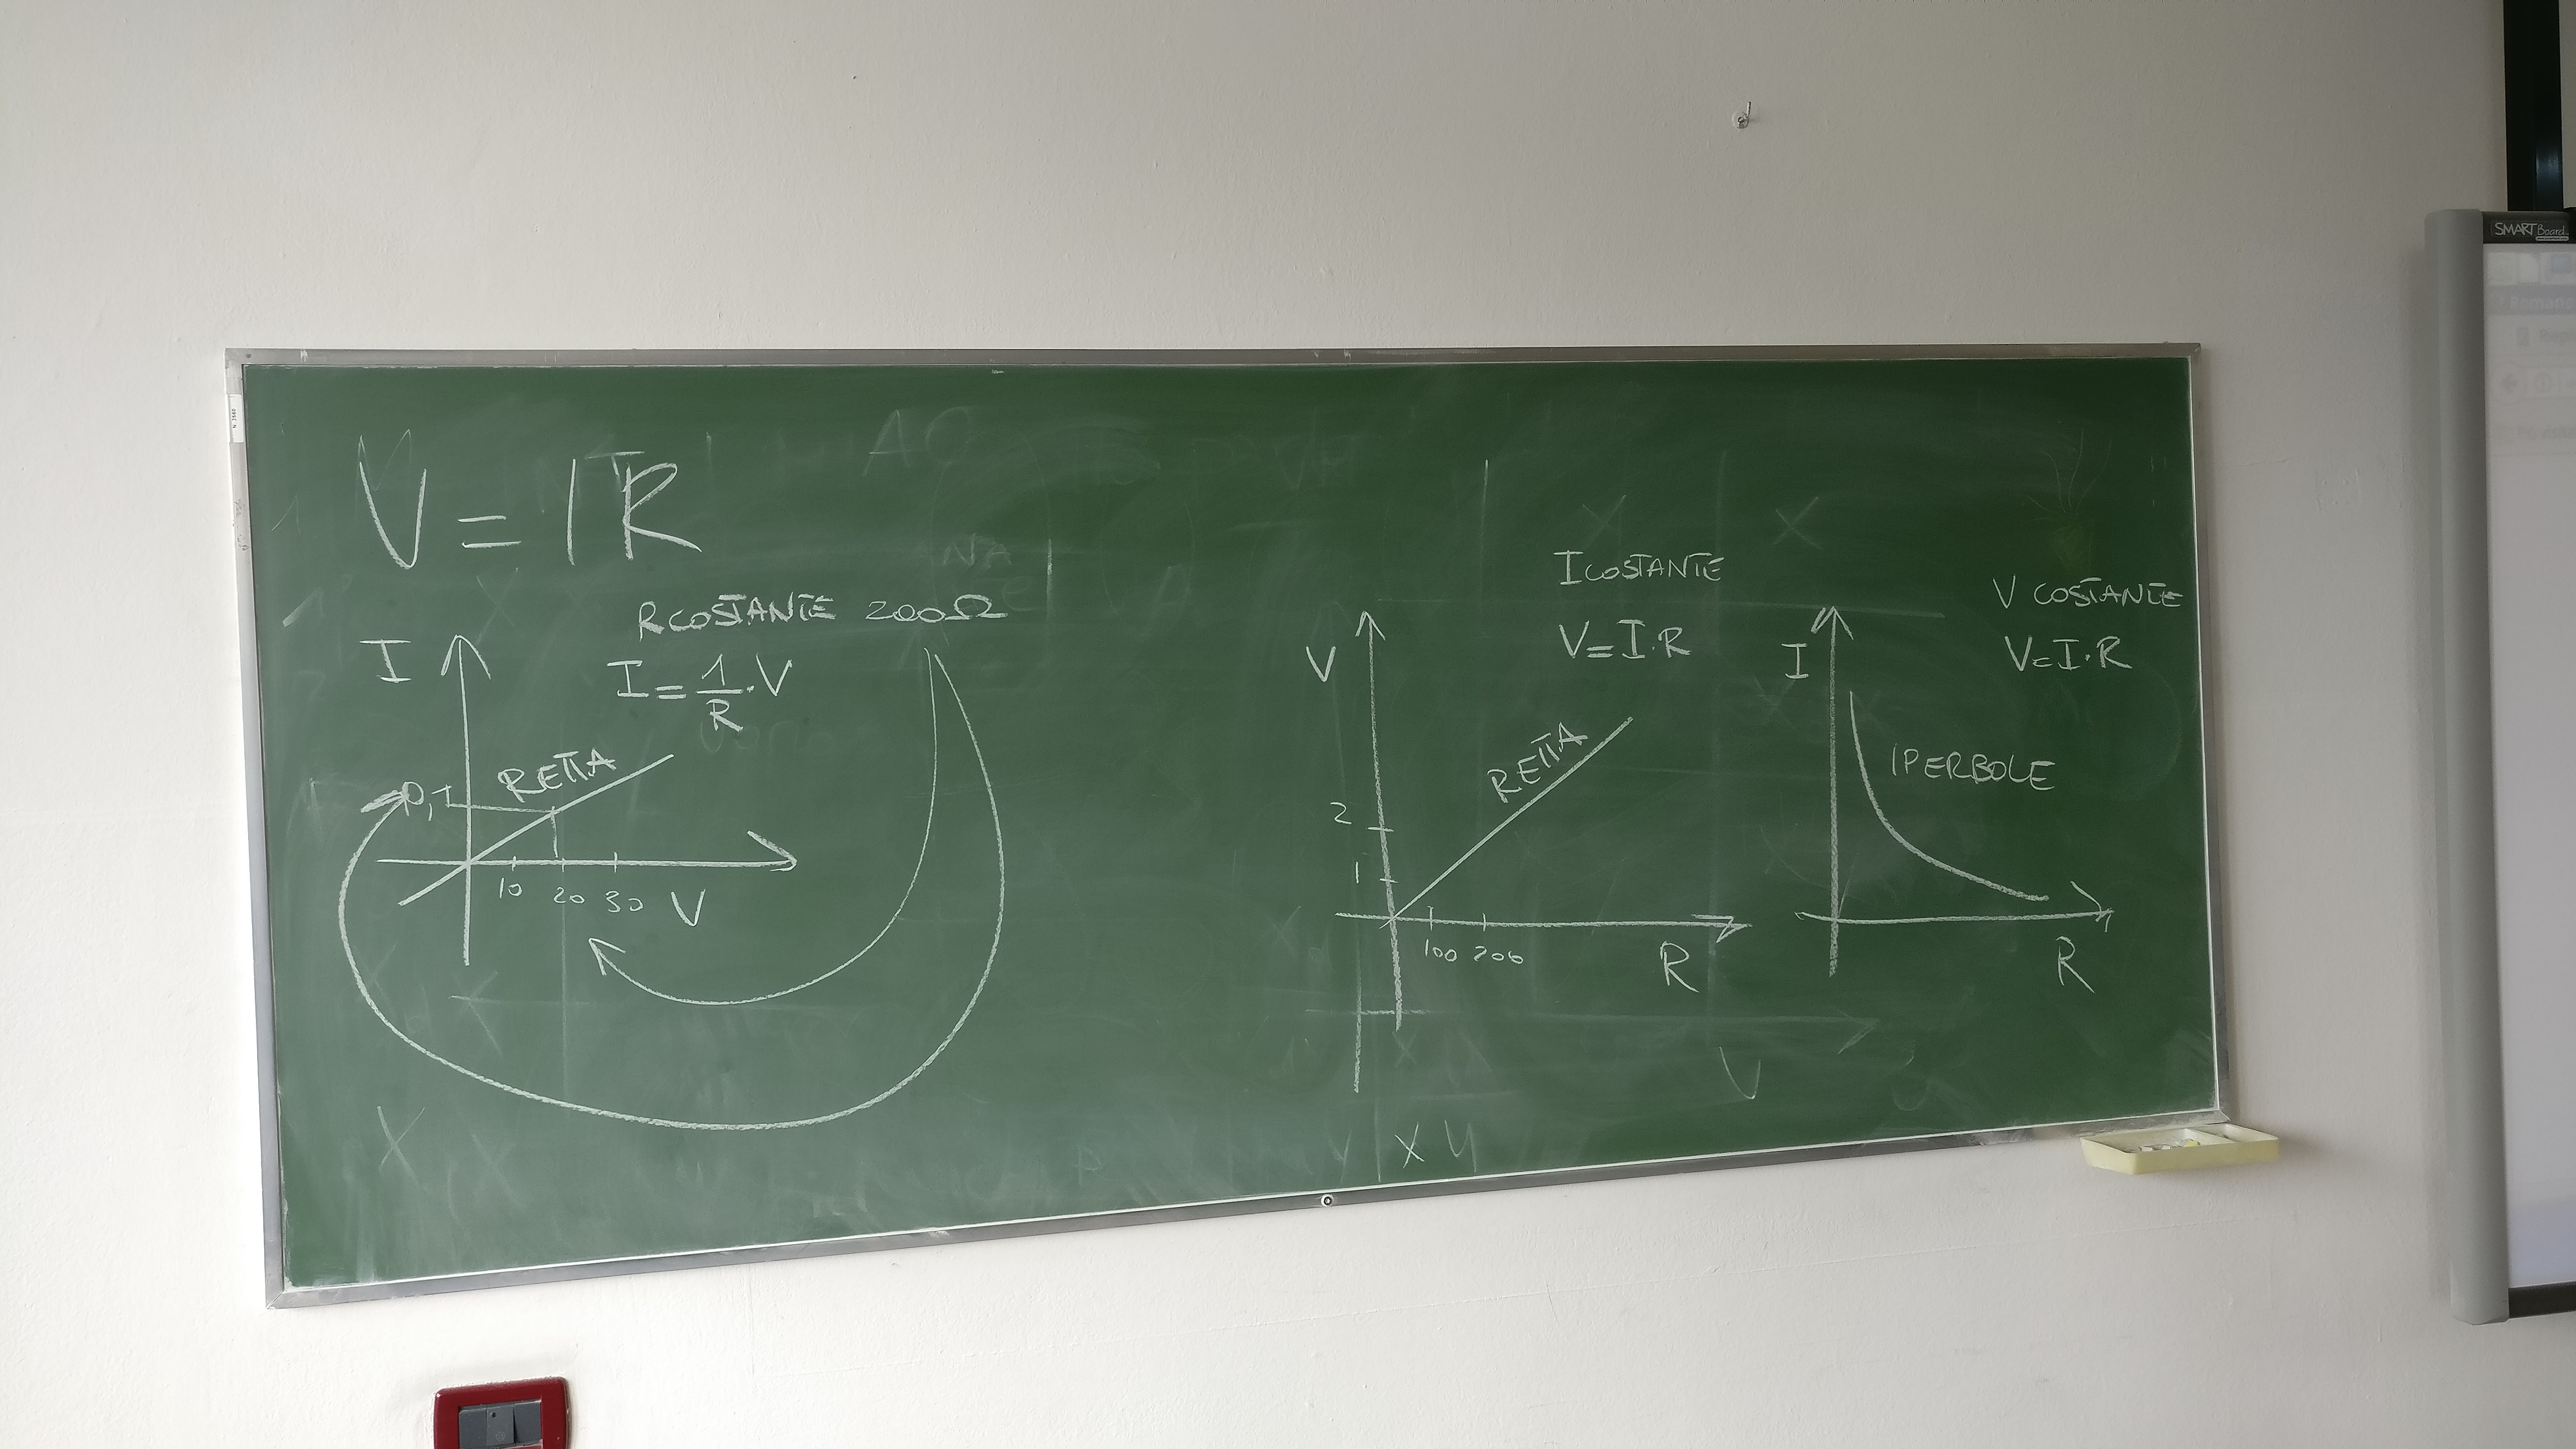 V = IR
R COSTANTE 200Ω
I = 1/R · V
I
RETTA
0,1
10 20 30 V
I COSTANTE
V = I·R
V
RETTA
2
1
100 200
R
V COSTANTE
V = I·R
I
IPERBOLE
R
X Y
SMART Board